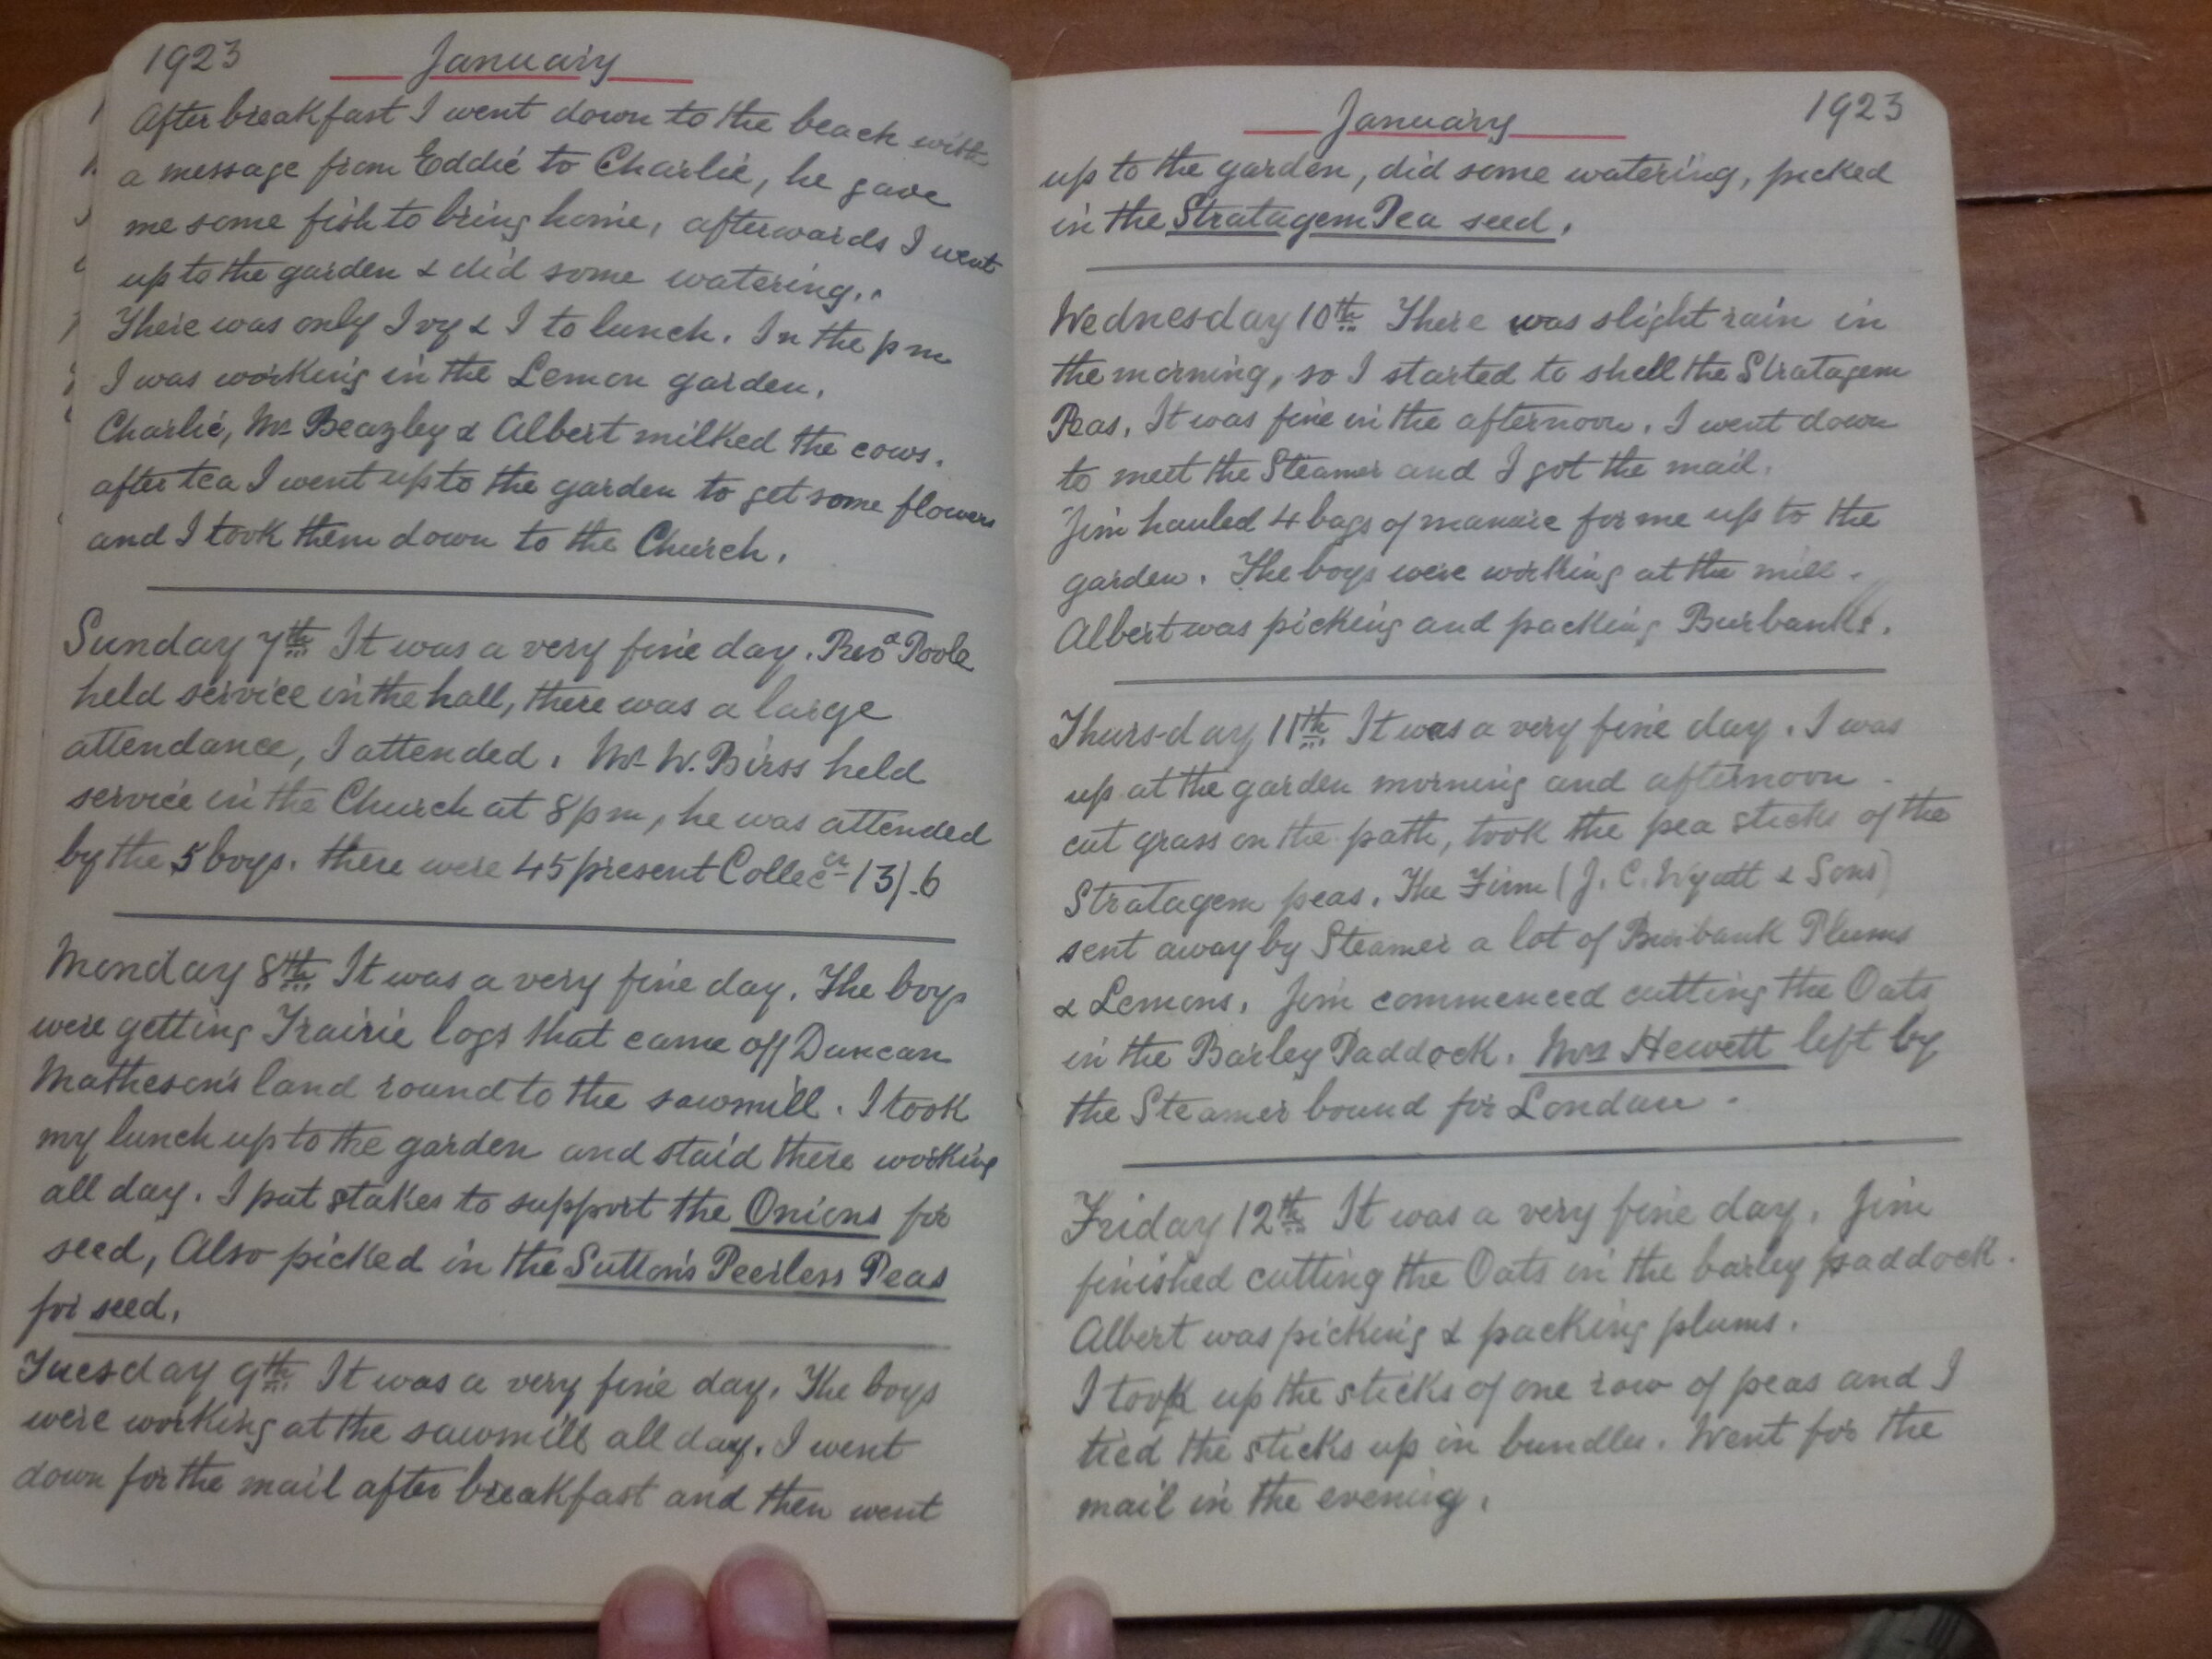 1923 January
After breakfast I went down to the beach with
a message from Eddie to Charlie, he gave
me some fish to bring home, afterwards I went
up to the garden & did some watering.
There was only Ivy & I to lunch. In the pm
I was working in the Lemon garden.
Charlie, Mr Beazley & Albert milked the cows.
after tea I went up to the garden to get some flowers
and I took them down to the Church.
Sunday 7th It was a very fine day. Revd Poole
held service in the hall, there was a large
attendance, I attended. Mr W. Birss held
service in the Church at 8pm, he was attended
by the 5 boys. there were 45 present Collecn 13/.6
Monday 8th It was a very fine day. The boys
were getting Trairie logs that came off Duncan
Matheson's land round to the sawmill. I took
my lunch up to the garden and staid there working
all day. I put stakes to support the Onions for
seed, Also picked in the Sutton's Peerless Peas
for seed.
Tuesday 9th It was a very fine day. The boys
were working at the sawmill all day. I went
down for the mail after breakfast and then went
January 1923
up to the garden, did some watering, picked
in the Stratagem Pea seed.
Wednesday 10th There was slight rain in
the morning, so I started to shell the Stratagem
Peas. It was fine in the afternoon. I went down
to meet the Steamer and I got the mail.
Jim hauled 4 bags of manure for me up to the
garden. The boys were working at the mill.
Albert was picking and packing Burbanks.
Thursday 11th It was a very fine day. I was
up at the garden morning and afternoon
cut grass on the path, took the pea sticks of the
Stratagem peas. The Firm (J. C. Wyatt & Sons)
sent away by Steamer a lot of Burbank Plums
& Lemons. Jim commenced cutting the Oats
in the Barley Paddock. Mrs Hewett left by
the Steamer bound for London.
Friday 12th It was a very fine day. Jim
finished cutting the Oats in the barley paddock.
Albert was picking & packing plums.
I took up the sticks of one row of peas and I
tied the sticks up in bundles. Went for the
mail in the evening.